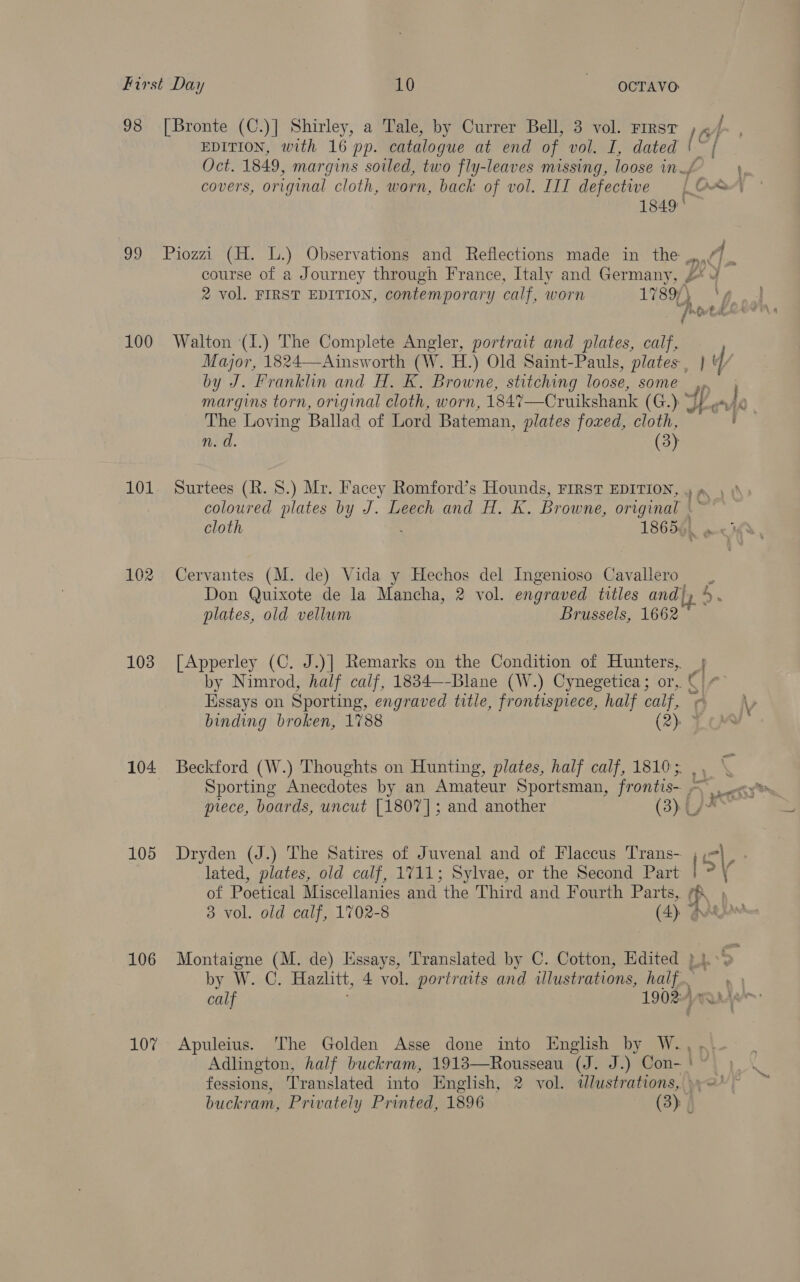 First Day 10 OCTAVO
98 [Bronte (C.)] Shirley, a Tale, by Currer Bell, 3 vol. FIRST
EDITION, with 16 pp. catalogue at end of vol. I, dated
Oct. 1849, margins soiled, two fly-leaves missing, loose in
covers, original cloth, worn, back of vol. III defective
1849
99 Piozzi (H. L.) Observations and Reflections made in the
course of a Journey through France, Italy and Germany,
2 vol. FIRST EDITION, contemporary calf, worn 1789
100 Walton (I.) The Complete Angler, portrait and plates, calf,
Major, 1824—Ainsworth (W. H.) Old Saint-Pauls, plates
by J. Franklin and H. K. Browne, stitching loose, some
margins torn, original cloth, worn, 1847—Cruikshank (G.)
The Loving Ballad of Lord Bateman, plates foxed, cloth,
n. d. (3)
101 Surtees (R. S.) Mr. Facey Romford's Hounds, FIRST EDITION,
coloured plates by J. Leech and H. K. Browne, original
cloth 1865
102 Cervantes (M. de) Vida y Hechos del Ingenioso Cavallero
Don Quixote de la Mancha, 2 vol. engraved titles and
plates, old vellum Brussels, 1662
103 [Apperley (C. J.)] Remarks on the Condition of Hunters,
by Nimrod, half calf, 1834—Blane (W.) Cynegetica; or,
Essays on Sporting, engraved title, frontispiece, half calf,
binding broken, 1788 (2)
104 Beckford (W.) Thoughts on Hunting, plates, half calf, 1810;
Sporting Anecdotes by an Amateur Sportsman, frontis-
piece, boards, uncut [1807]; and another (3)
105 Dryden (J.) The Satires of Juvenal and of Flaccus Trans-
lated, plates, old calf, 1711; Sylvae, or the Second Part
of Poetical Miscellanies and the Third and Fourth Parts,
3 vol. old calf, 1702-8 (4)
106 Montaigne (M. de) Essays, Translated by C. Cotton, Edited
by W. C. Hazlitt, 4 vol. portraits and illustrations, half
calf 1902
107 Apuleius. The Golden Asse done into English by W.
Adlington, half buckram, 1913—Rousseau (J. J.) Con-
fessions, Translated into English, 2 vol. illustrations,
buckram, Privately Printed, 1896 (3)